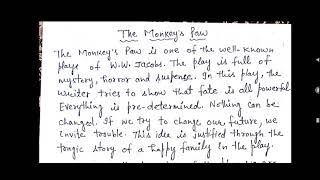 The Monkey's Paw
The Monkey's Paw is one of the well-known
plays of W.W. Jacobs. The play is full of
mystery, horror and suspense. In this play, the
writer tries to show that fate is all powerful.
Everything is pre-determined. Nothing can be
changed. If we try to change our future, we
invite trouble. This idea is justified through the
tragic story of a happy family in the play.